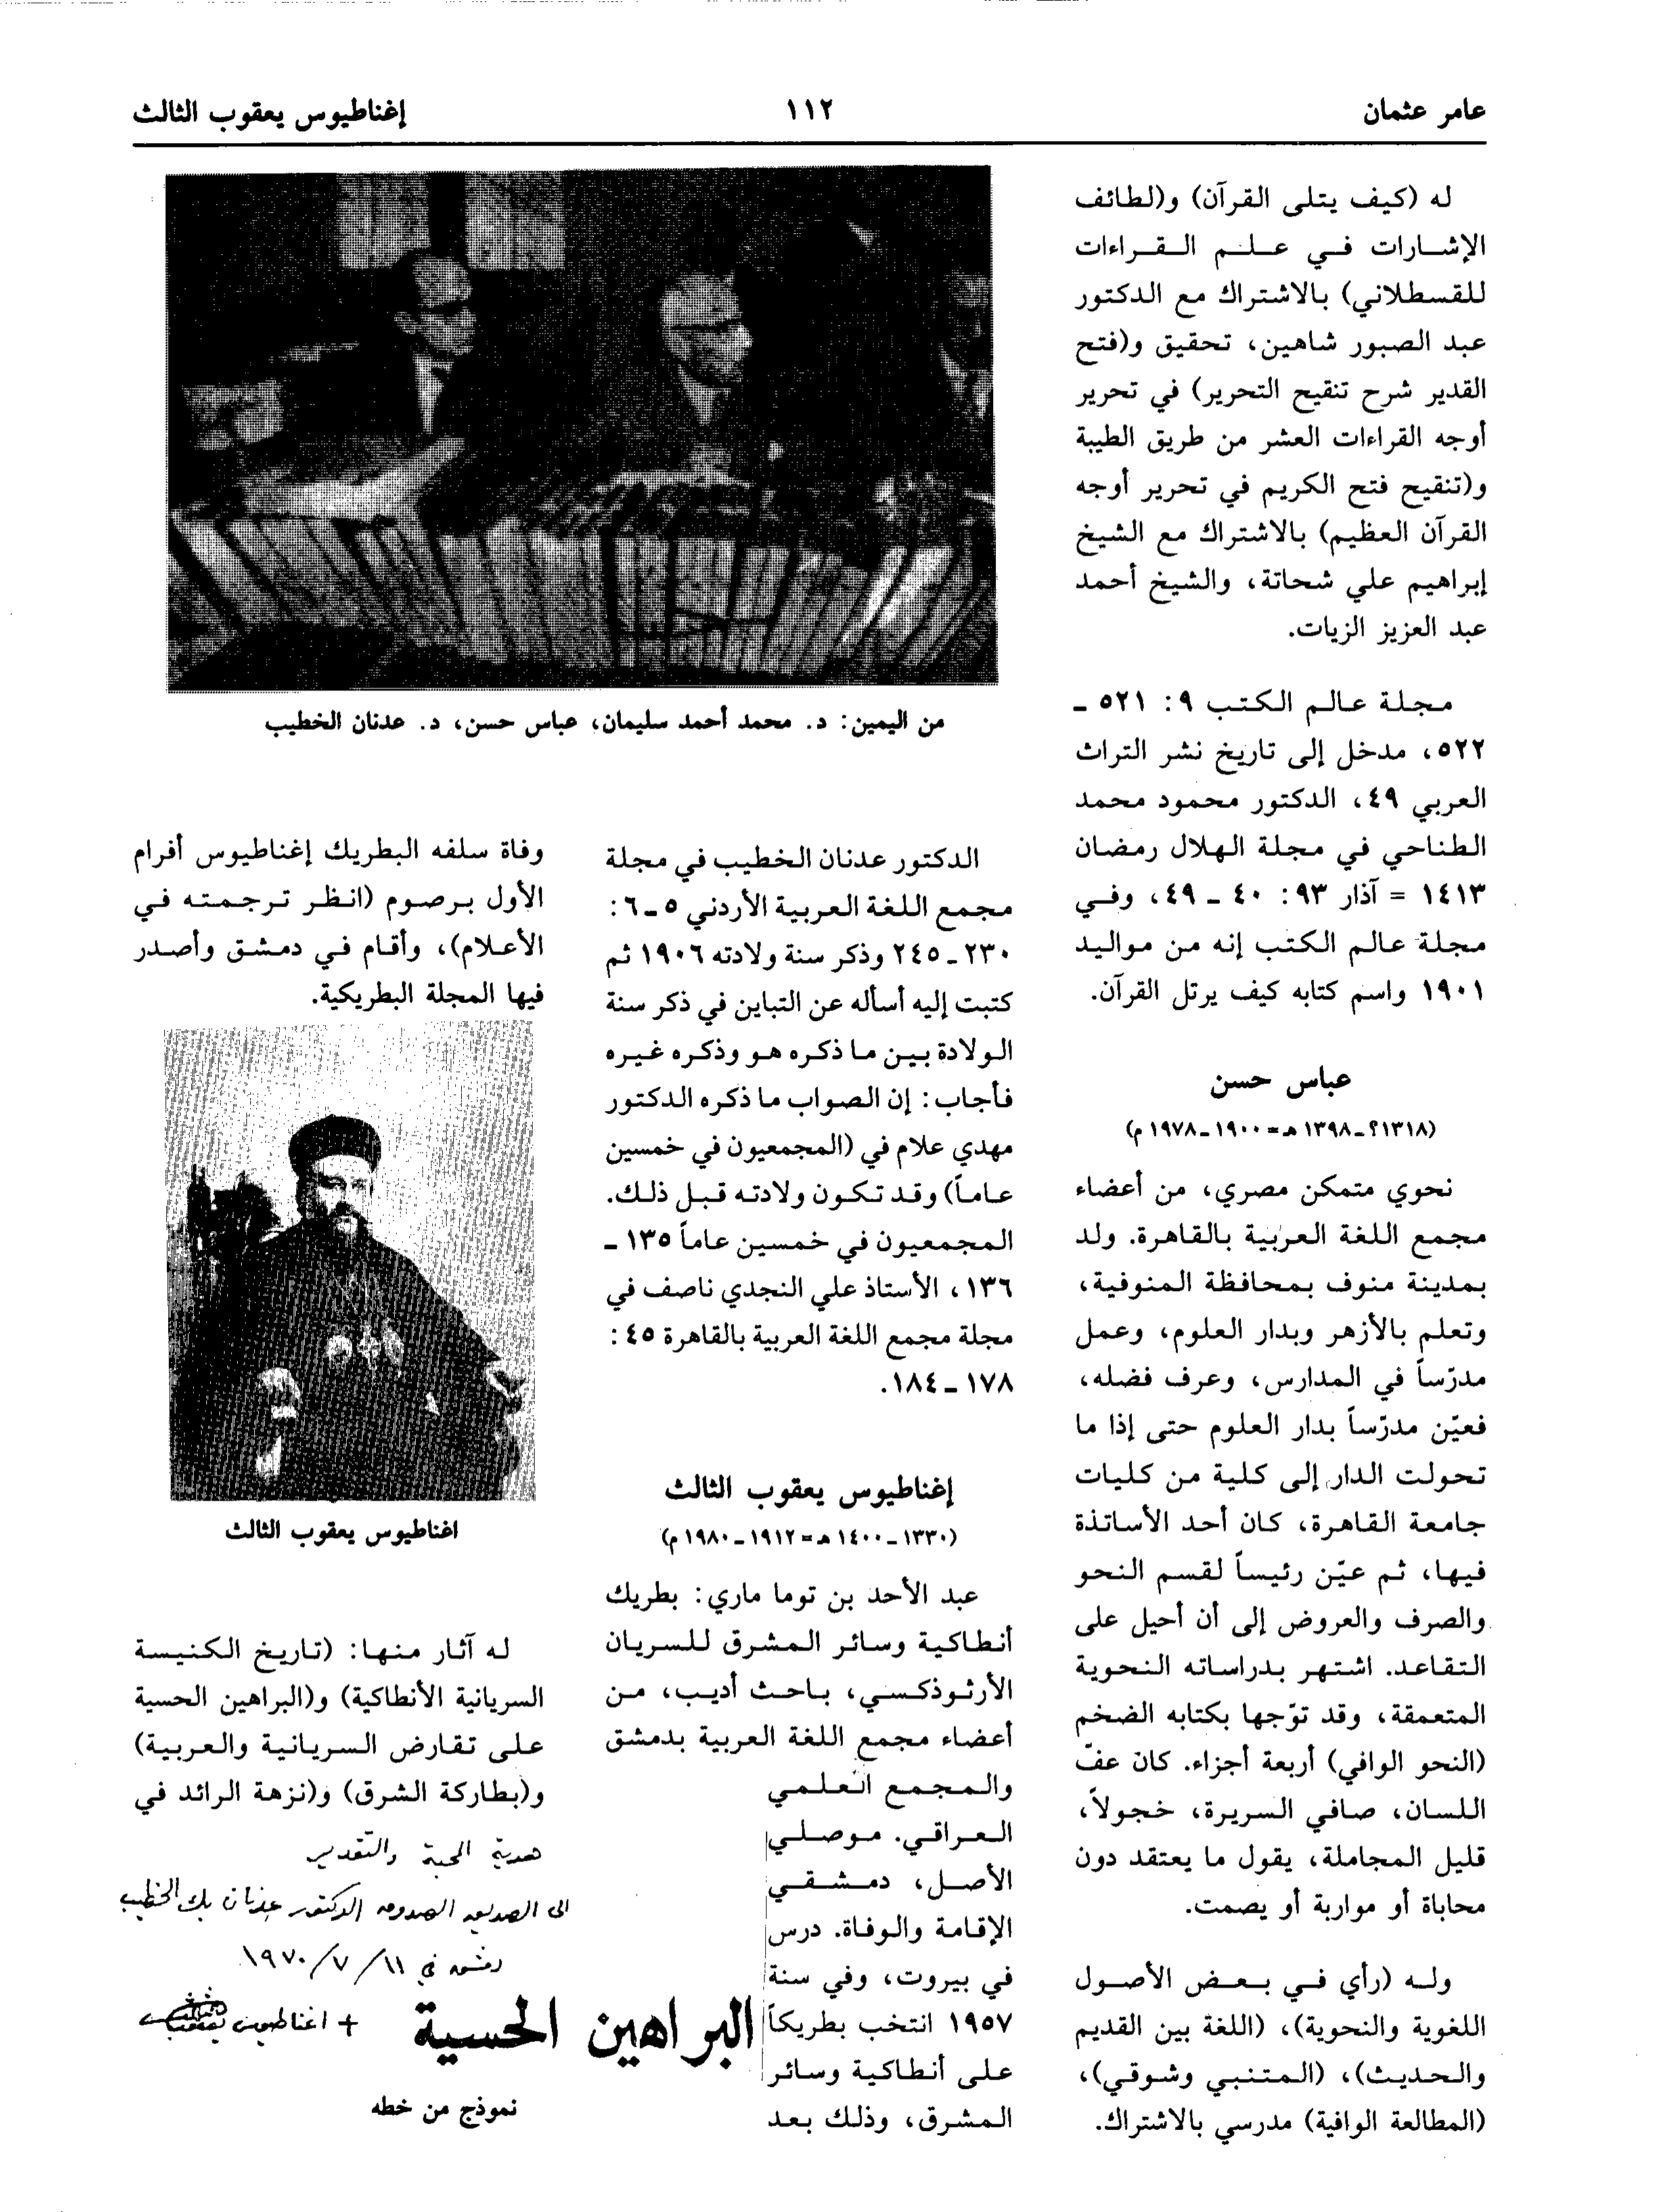 عامر عثمان
١١٢
إغناطيوس يعقوب الثالث
له (كيف يتلى القرآن) و(لطائف
الإشارات في علم القراءات
للقسطلاني) بالاشتراك مع الدكتور
عبد الصبور شاهين، تحقيق و(فتح
القدير شرح تنقيح التحرير) في تحرير
أوجه القراءات العشر من طريق الطيبة
و(تنقيح فتح الكريم في تحرير أوجه
القرآن العظيم) بالاشتراك مع الشيخ
إبراهيم علي شحاتة، والشيخ أحمد
عبد العزيز الزيات.
مجلة عالم الكتب ٩: ٥٢١ -
٥٢٢، مدخل إلى تاريخ نشر التراث
العربي ٤٩، الدكتور محمود محمد
الطناحي في مجلة الهلال رمضان
١٤١٣ = آذار ٩٣: ٤٠ - ٤٩، وفي
مجلة عالم الكتب إنه من مواليد
١٩٠١ واسم كتابه كيف يرتل القرآن.
عباس حسن
(١٣١٨؟ - ١٣٩٨ هـ = ١٩٠٠ - ١٩٧٨ م)
نحوي متمكن مصري، من أعضاء
مجمع اللغة العربية بالقاهرة. ولد
بمدينة منوف بمحافظة المنوفية،
وتعلم بالأزهر وبدار العلوم، وعمل
مدرّساً في المدارس، وعرف فضله،
فعيّن مدرّساً بدار العلوم حتى إذا ما
تحولت الدار إلى كلية من كليات
جامعة القاهرة، كان أحد الأساتذة
فيها، ثم عيّن رئيساً لقسم النحو
والصرف والعروض إلى أن أحيل على
التقاعد. اشتهر بدراساته النحوية
المتعمقة، وقد توّجها بكتابه الضخم
(النحو الوافي) أربعة أجزاء. كان عفّ
اللسان، صافي السريرة، خجولاً،
قليل المجاملة، يقول ما يعتقد دون
محاباة أو مواربة أو يصمت.
وله (رأي في بعض الأصول
اللغوية والنحوية)، (اللغة بين القديم
والحديث)، (المتنبي وشوقي)،
(المطالعة الوافية) مدرسي بالاشتراك.
من اليمين: د. محمد أحمد سليمان، عباس حسن، د. عدنان الخطيب
الدكتور عدنان الخطيب في مجلة
مجمع اللغة العربية الأردني ٥ - ٦:
٢٣٠ - ٢٤٥ وذكر سنة ولادته ١٩٠٦ ثم
كتبت إليه أسأله عن التباين في ذكر سنة
الولادة بين ما ذكره هو وذكره غيره
فأجاب: إن الصواب ما ذكره الدكتور
مهدي علام في (المجمعيون في خمسين
عاماً) وقد تكون ولادته قبل ذلك.
المجمعيون في خمسين عاماً ١٣٥ -
١٣٦، الأستاذ علي النجدي ناصف في
مجلة مجمع اللغة العربية بالقاهرة ٤٥:
١٧٨ - ١٨٤.
إغناطيوس يعقوب الثالث
(١٣٣٠ - ١٤٠٠ هـ = ١٩١٢ - ١٩٨٠ م)
عبد الأحد بن توما ماري: بطريك
أنطاكية وسائر المشرق للسريان
الأرثوذكسي، باحث أديب، من
أعضاء مجمع اللغة العربية بدمشق
والمجمع العلمي
العراقي. موصلي
الأصل، دمشقي
الإقامة والوفاة. درس
في بيروت، وفي سنة
١٩٥٧ انتخب بطريكاً
على أنطاكية وسائر
المشرق، وذلك بعد
وفاة سلفه البطريك إغناطيوس أفرام
الأول برصوم (انظر ترجمته في
الأعلام)، وأقام في دمشق وأصدر
فيها المجلة البطريكية.
اغناطيوس يعقوب الثالث
له آثار منها: (تاريخ الكنيسة
السريانية الأنطاكية) و(البراهين الحسية
على تقارض السريانية والعربية)
و(بطاركة الشرق) و(نزهة الرائد في
هدية المحبة والتقدير
الى الصديق الصدوق الدكتور عدنان بك الخطيب
دمشق في ١١/٧/١٩٧٠
+ اغناطيوس يعقوب الثالث
البراهين الحسية
نموذج من خطه